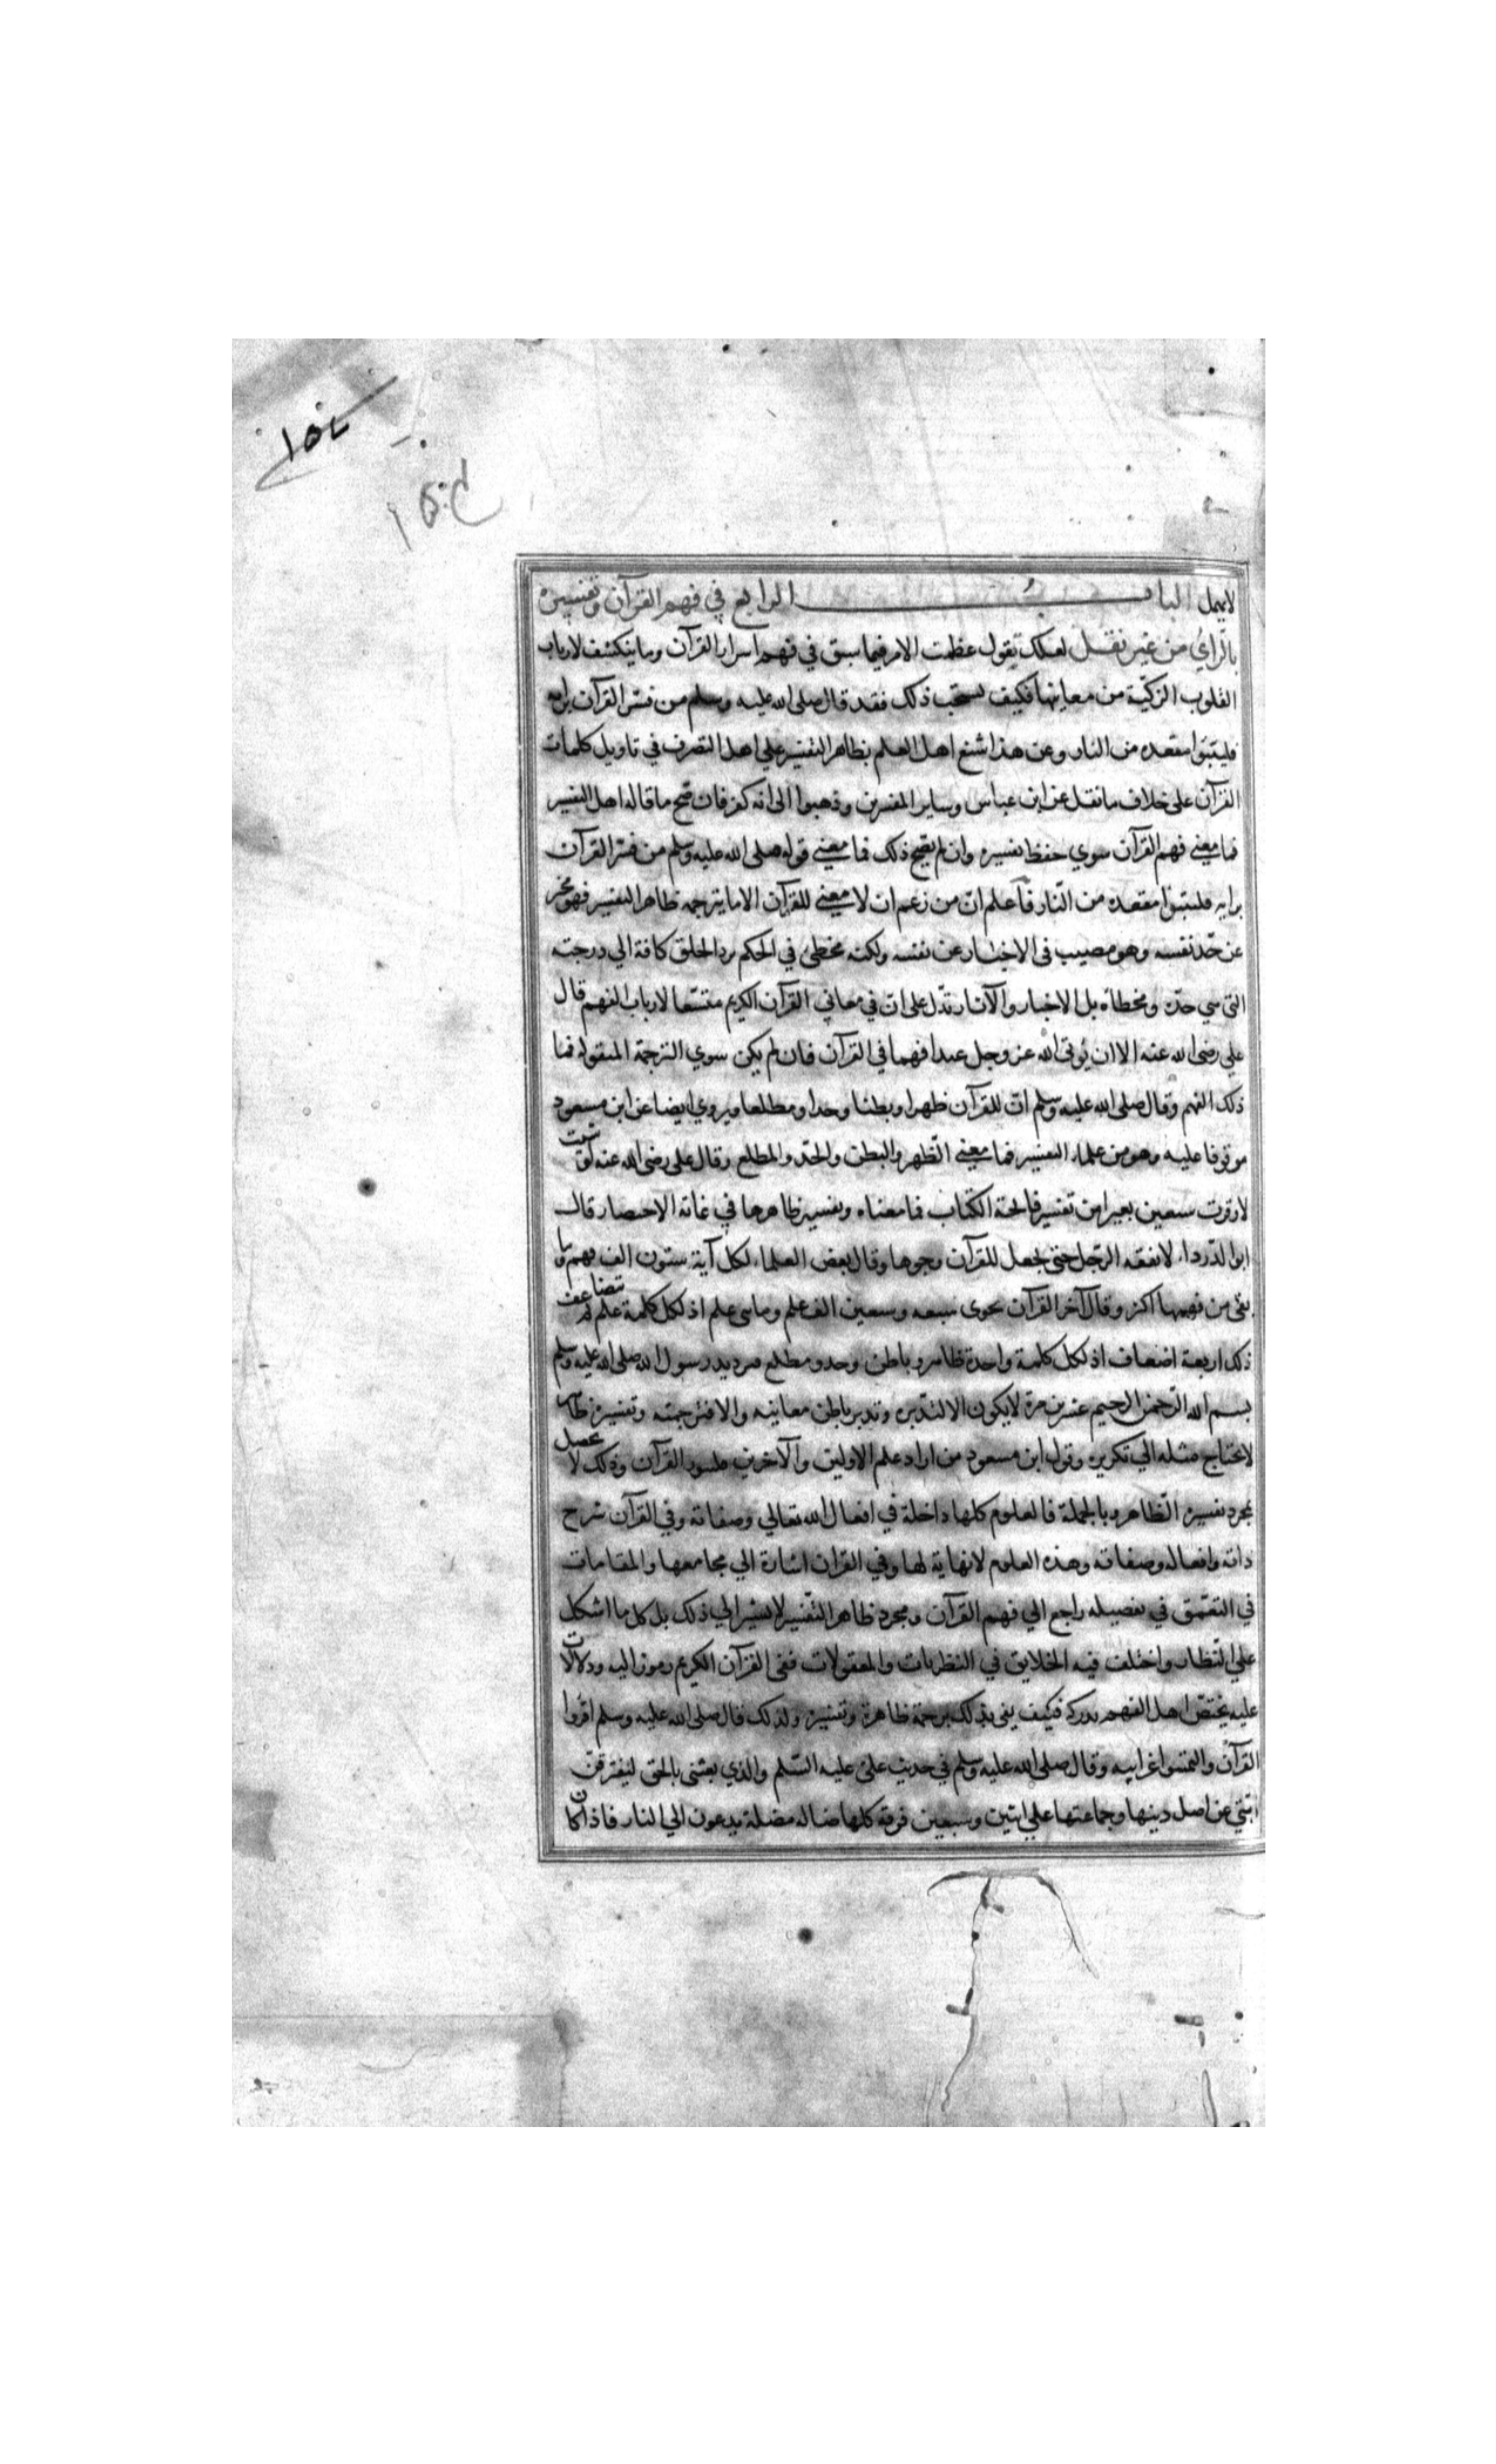 ١٥٤
١٥٤
لا يهمل الباب الرابع في فهم القرآن وتفسيره
بالراي من غير نقل لعلك تقول عظمت الامر فيما سبق في فهم اسرار القرآن وما ينكشف لارباب
القلوب الزكيّة من معانيها فكيف يستحب ذلك فقد قال صلى الله عليه وسلم من فسّر القرآن برايه
فليتبوا مقعده من النار وعن هذا شنع اهل العلم بظاهر التفسير علي اهل التصرف في تاويل كلمات
القرآن على خلاف ما نقل عن ابن عباس وساير المفسرين وذهبوا الى انه كفر فان صح ما قاله اهل التفسير
فما معني فهم القرآن سوي حفظ تفسيره وان لم يصح ذلك فما معني قوله صلى الله عليه وسلم من فسّر القرآن
برايه فليتبوا مقعده من النّار فاعلم انّ من زعم ان لا معني للقرآن الا ما يترجمه ظاهر التفسير فهو مخبر
عن حّد نفسه وهو مصيب فى الاخبار عن نفسه ولكنه مخطئ في الحكم برد الخلق كافة الي درجته
التى هي حدّه ومحطاه بل الاخبار والآثار تدّل على انّ في معاني القرآن الكريم متسّعا لارباب الفهم قال
علي رضى الله عنه الا ان يؤتى الله عز وجل عبدا فهما في القرآن فان لم يكن سوي الترجمة المنقوله فما
ذلك الفهم وقال صلى الله عليه وسلم انّ للقرآن ظهرا وبطنا وحدا ومطلعا ويروي ايضا عن ابن مسعود
موقوفا عليه وهو من علماء التفسير فما معني الظّهر والبطن والحدّ والمطلع وقال على رضى الله عنه لو شئت
لاوقرت سبعين بعيرا من تفسير فاتحة الكتاب فما معناه وتفسير ظاهرها في غاية الاختصار قال
ابو الدّرداء لا يفقه الرّجل حتى يجعل للقرآن وجوها وقال بعض العلماء لكل آية ستون الف فهم وما
بقى من فهمها اكثر وقال آخر القرآن يحوى سبعه وسبعين الف علم ومايتى علم اذ لكل كلمة علم ثم تضاعف
ذلك اربعة اضعاف اذ لكل كلمة واحدة ظاهر وباطن وحد ومطلع ترديد رسول الله صلى الله عليه وسلم
بسم الله الرّحمن الرحيم عشرين مرة لا يكون الا لتدّبره وتدبر باطن معانيه والا فترجمته وتفسيره ظاهر
لا يحتاج مثله الي تكرير وقول ابن مسعود من اراد علم الاولين والآخرين فليثور القرآن وذلك لا يحصل
بمجرد تفسيره الظّاهر وبالجملة فالعلوم كلها داخلة في افعال الله تعالي وصفاته وفي القرآن شرح
ذاته وافعاله وصفاته وهذه العلوم لا نهاية لها وفي القران اشارة الي مجامعها والمقامات
في التعمّق في تفصيله راجع الي فهم القرآن ومجرد ظاهر التّفسير لا يشير الي ذلك بل كل ما اشكل
علي النّظار واختلف فيه الخلايق في النظريات والمعقولات ففى القرآن الكريم رموز اليه ودلالات
عليه يختصّ اهل الفهم بدركه فكيف يفى بذلك ترجمة ظاهرة وتفسيره ولذلك قال صلى الله عليه وسلم اقرؤا
القرآن والتمسوا غرايبه وقال صلى الله عليه وسلم في حديث علىّ عليه السّلم والذي بعثنى بالحق لتفترقنّ
امتي عن اصل دينها وجماعتها علي اثنين وسبعين فرقة كلها ضاله مضلة يدعون الي النار فاذا كان